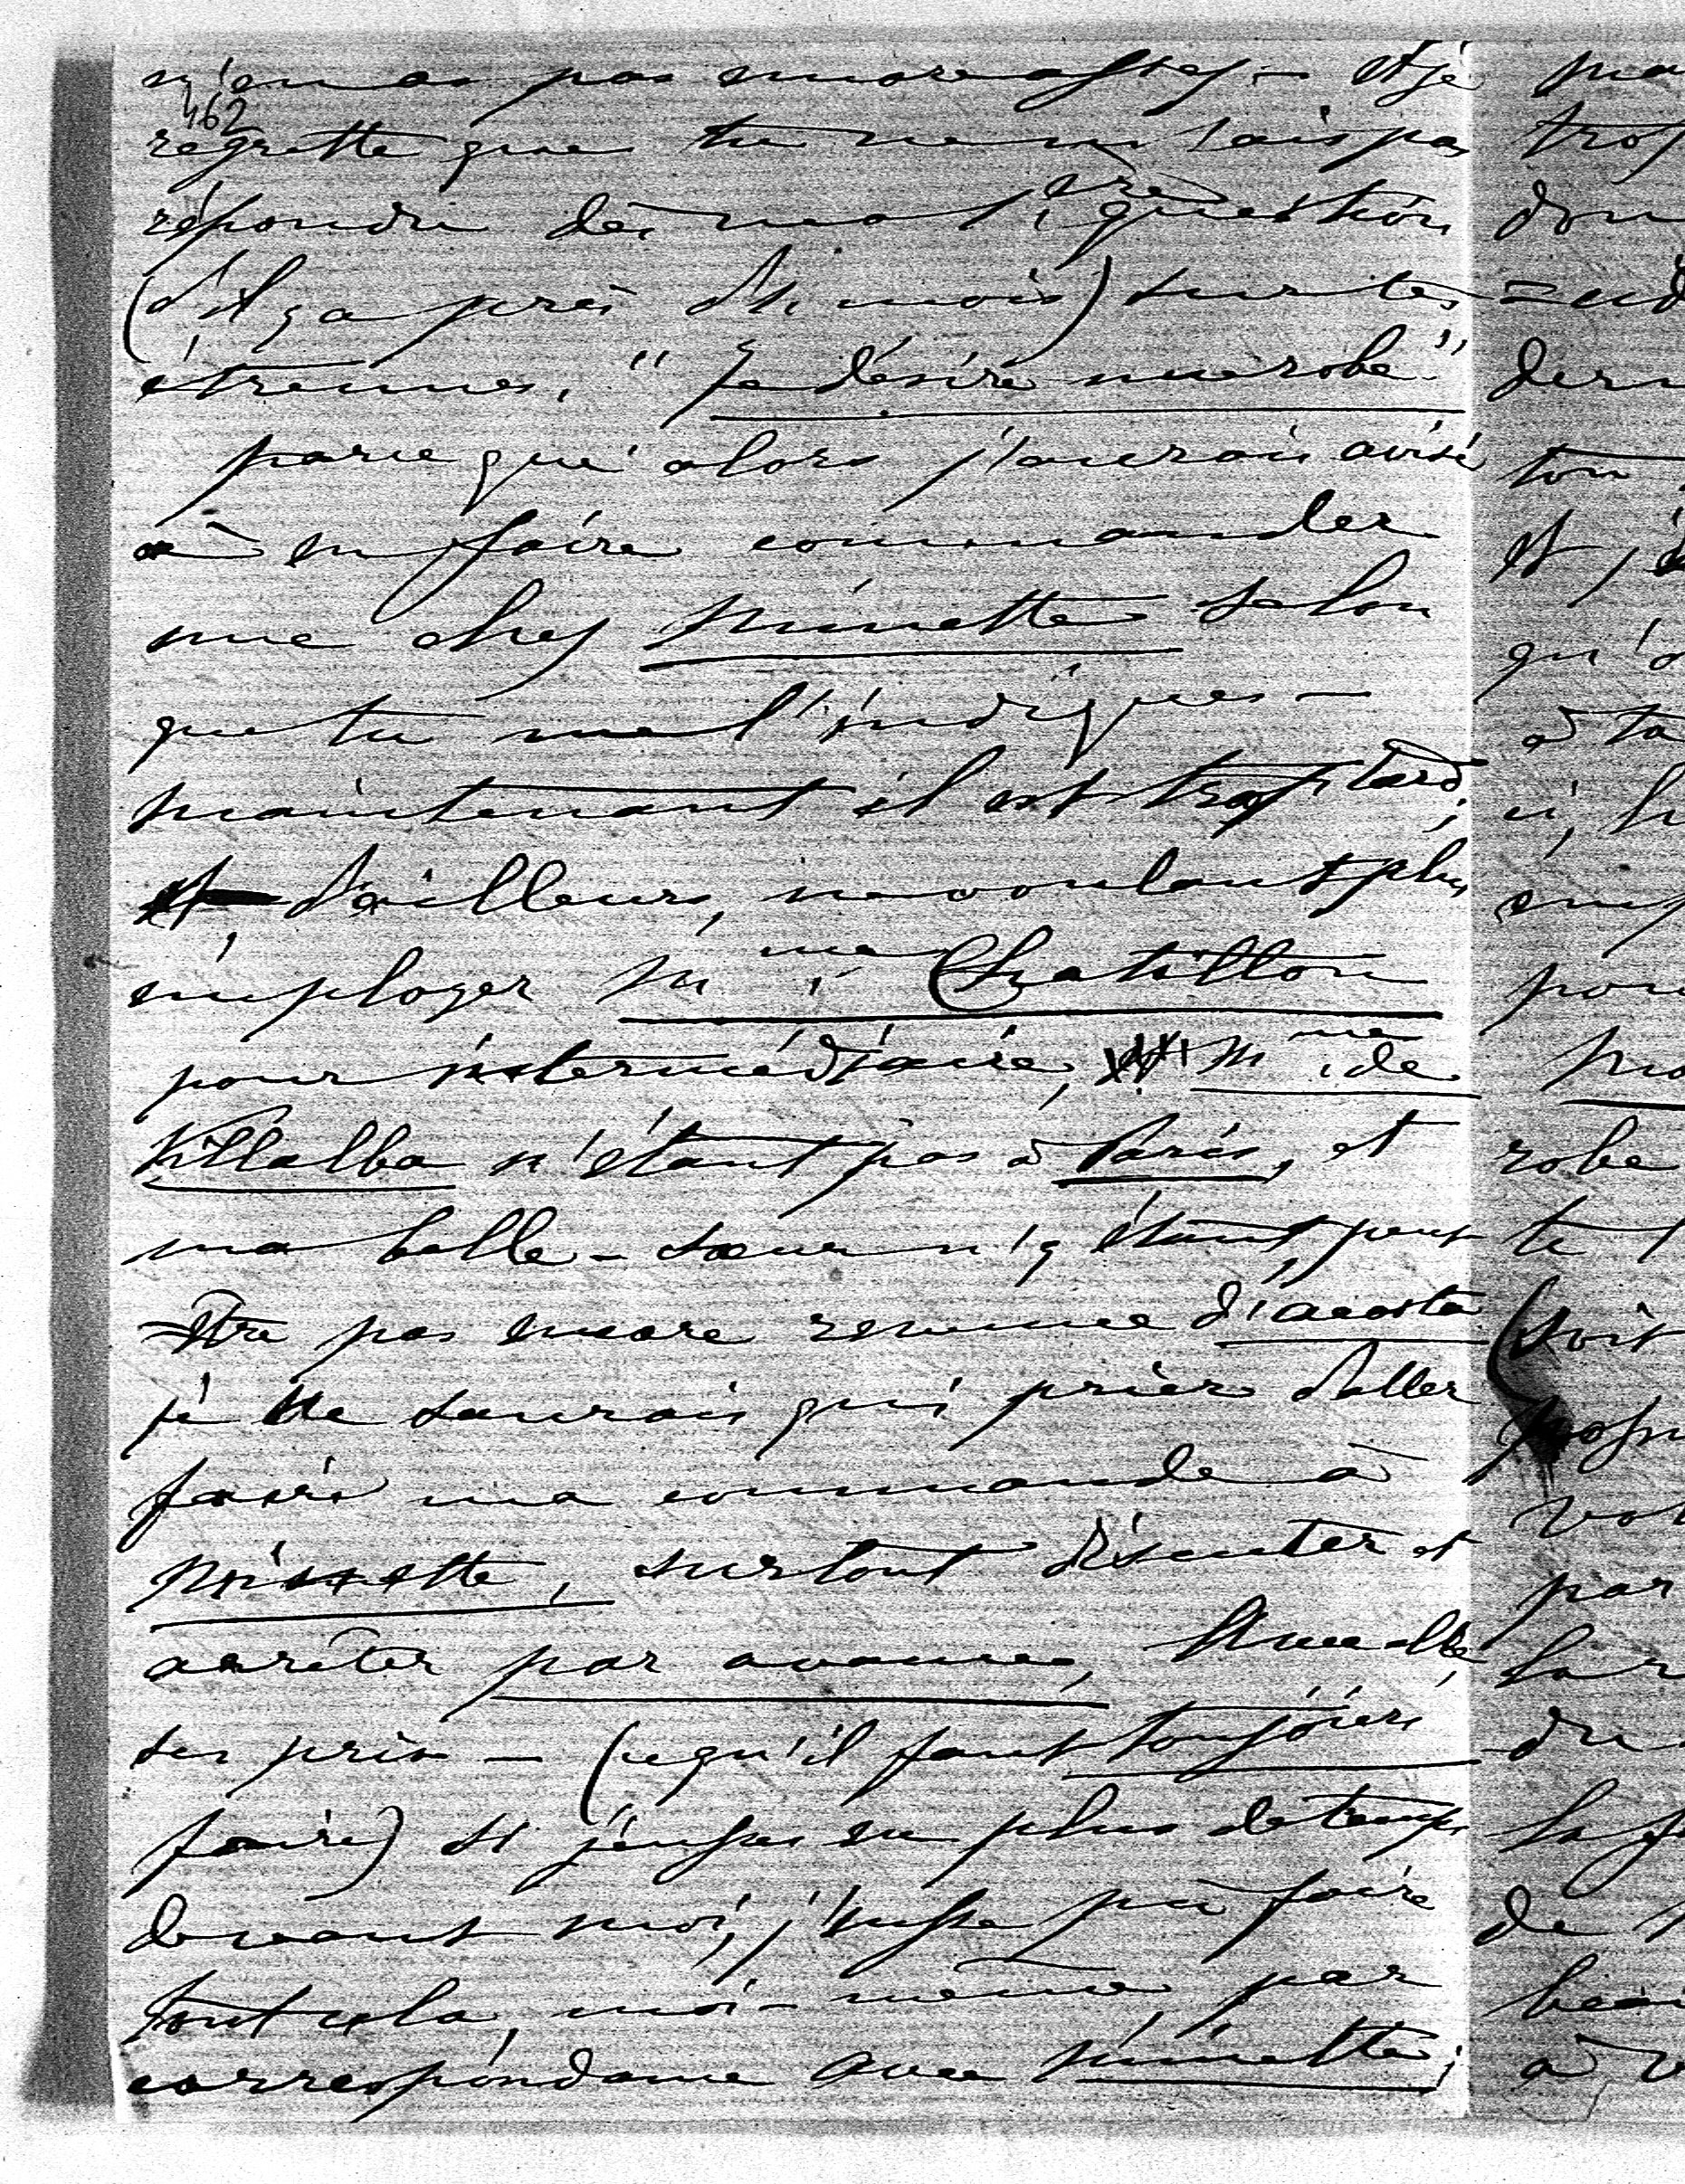 n'en as pas encore assez — et je
462
regrette que tu ne m'aies pas
répondu dès ma 1ère question
(d'il y a près d'1 mois) sur tes
étrennes, " Je désire une robe "
parce qu'alors j'aurais avisé
à en faire commander
une chez Ninette selon
que tu me l'indiques —
maintenant il est trop tard,
d'ailleurs, ne voulant plus
employer Mme Chatillon
pour intermédiaire, Mme de
Villalba n'étant pas à Paris, et
ma belle-sœur n'y étant, peut
=être pas encore revenue d'acosta
je ne saurais qui prier d'aller
faire ma commande à
Ninette, surtout discuter et
arrêter par avance, avec elle,
ses prix — (ce qu'il faut toujours
faire) si j'eusse eu plus de temps
devant moi, j'eusse pu faire
tout cela, moi-même, par
correspondance avec Ninette;
ma
trop
don
ton
et j'
qu'
à ta
pou
robe
te
(soit
par
la
de
à